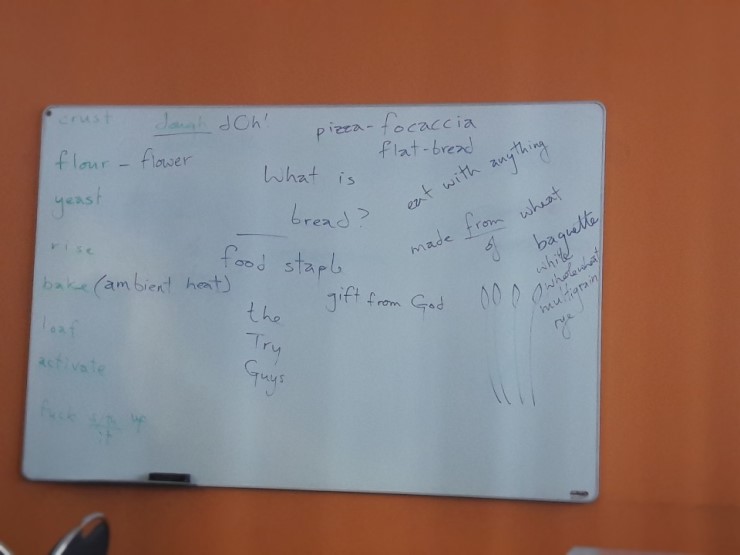 crust
dough dOh'
pizza-focaccia
flat-bread
flour - flower
What is
bread?
eat with anything
yeast
made from wheat
of
rise
food stapl
baguette
white
wholewheat
multigrain
rye
bake (ambient heat)
gift from God
the
Try
Guys
loaf
activate
fuck sth up